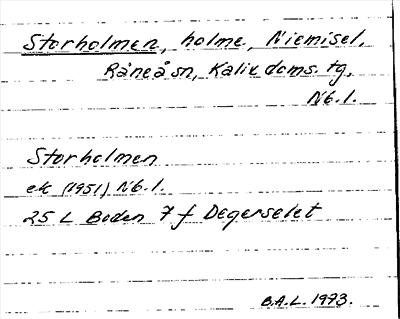 Storholmen, holme, Niemisel,
Råneå sn, Kalix doms. tg,
Nb. l.
Storholmen
ek (1951) Nb. l.
25 L Boden 7 f Degerselet
B.A.L. 1973.